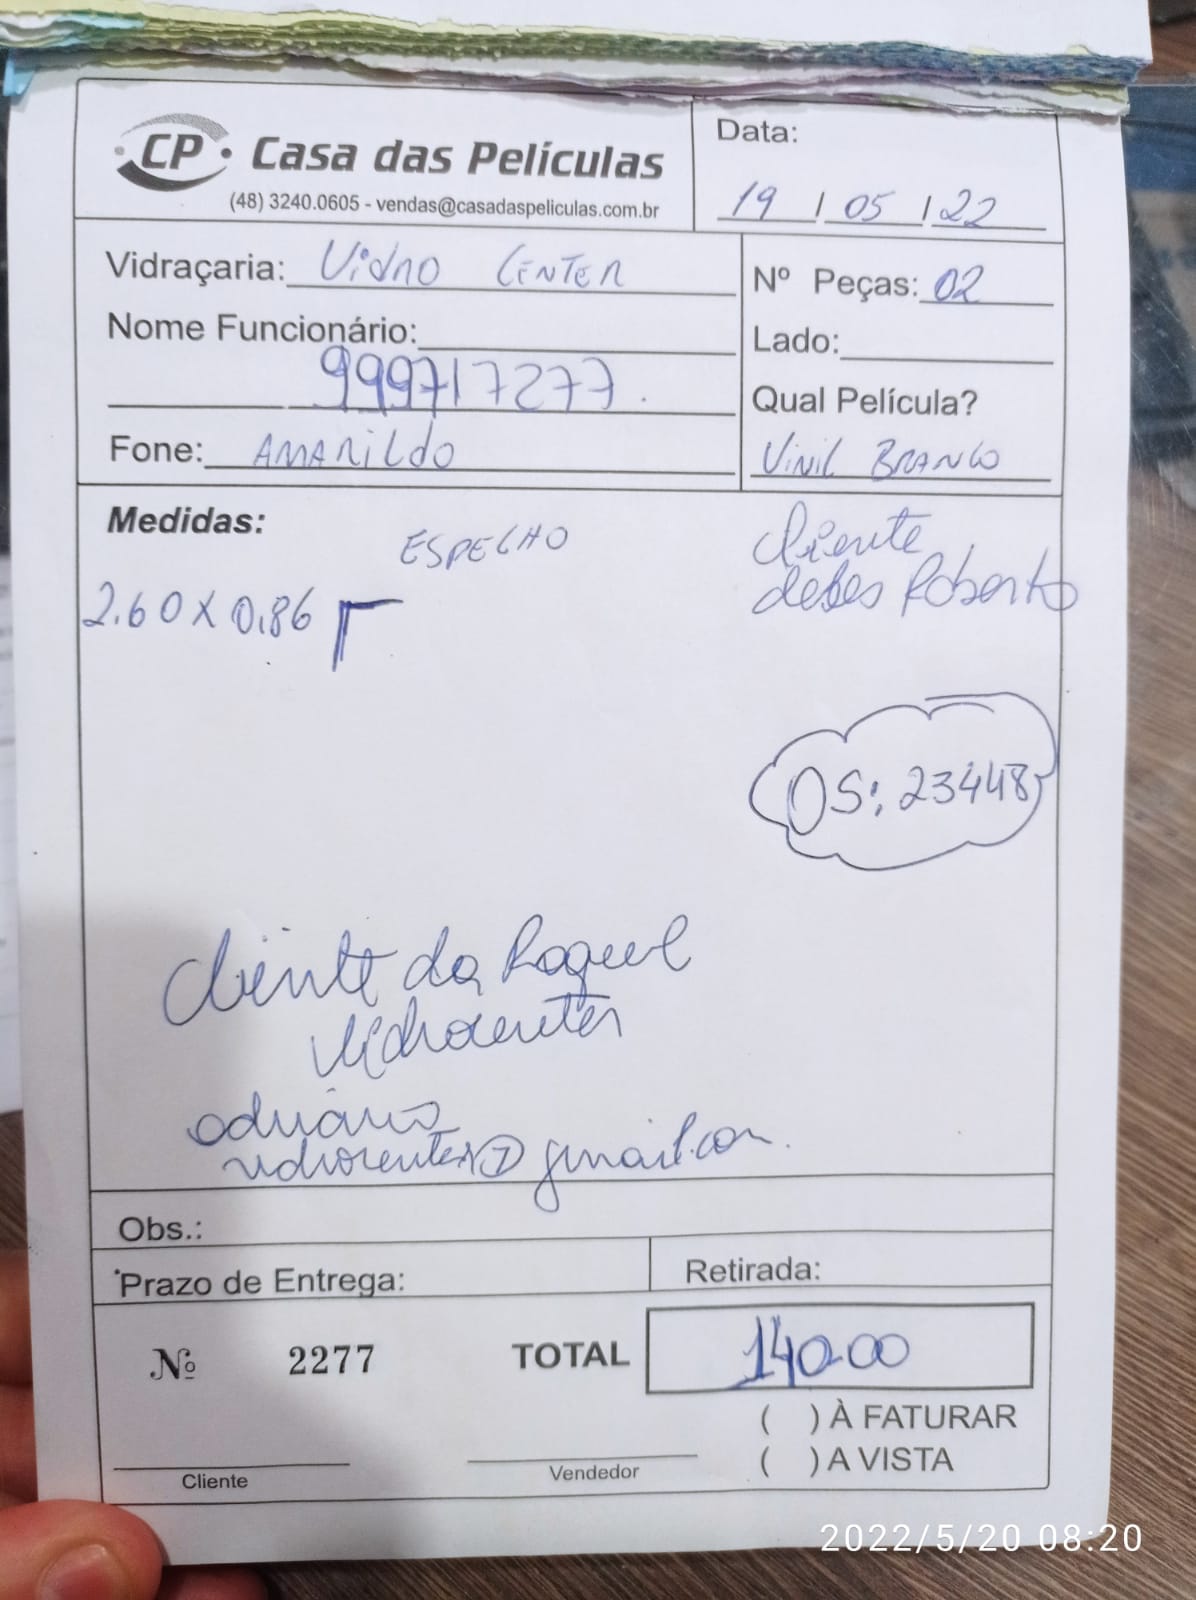 CP Casa das Películas
(48) 3240.0605 - vendas@casadaspeliculas.com.br
Data:
19 / 05 / 22
Vidraçaria: Vidro CENTER
Nome Funcionário:
999717277
Fone: AMARILDO
Nº Peças: 02
Lado:
Qual Película?
Vinil BRANCO
Medidas:
ESPELHO
2.60 X 0.86
Cliente
Roberto
OS: 23448
Cliente da Raquel
Vidrocenter
@gmail.com
Obs.:
Prazo de Entrega:
Retirada:
Nº 2277
TOTAL 140.00
( ) À FATURAR
( ) A VISTA
Cliente
Vendedor
2022/5/20 08:20